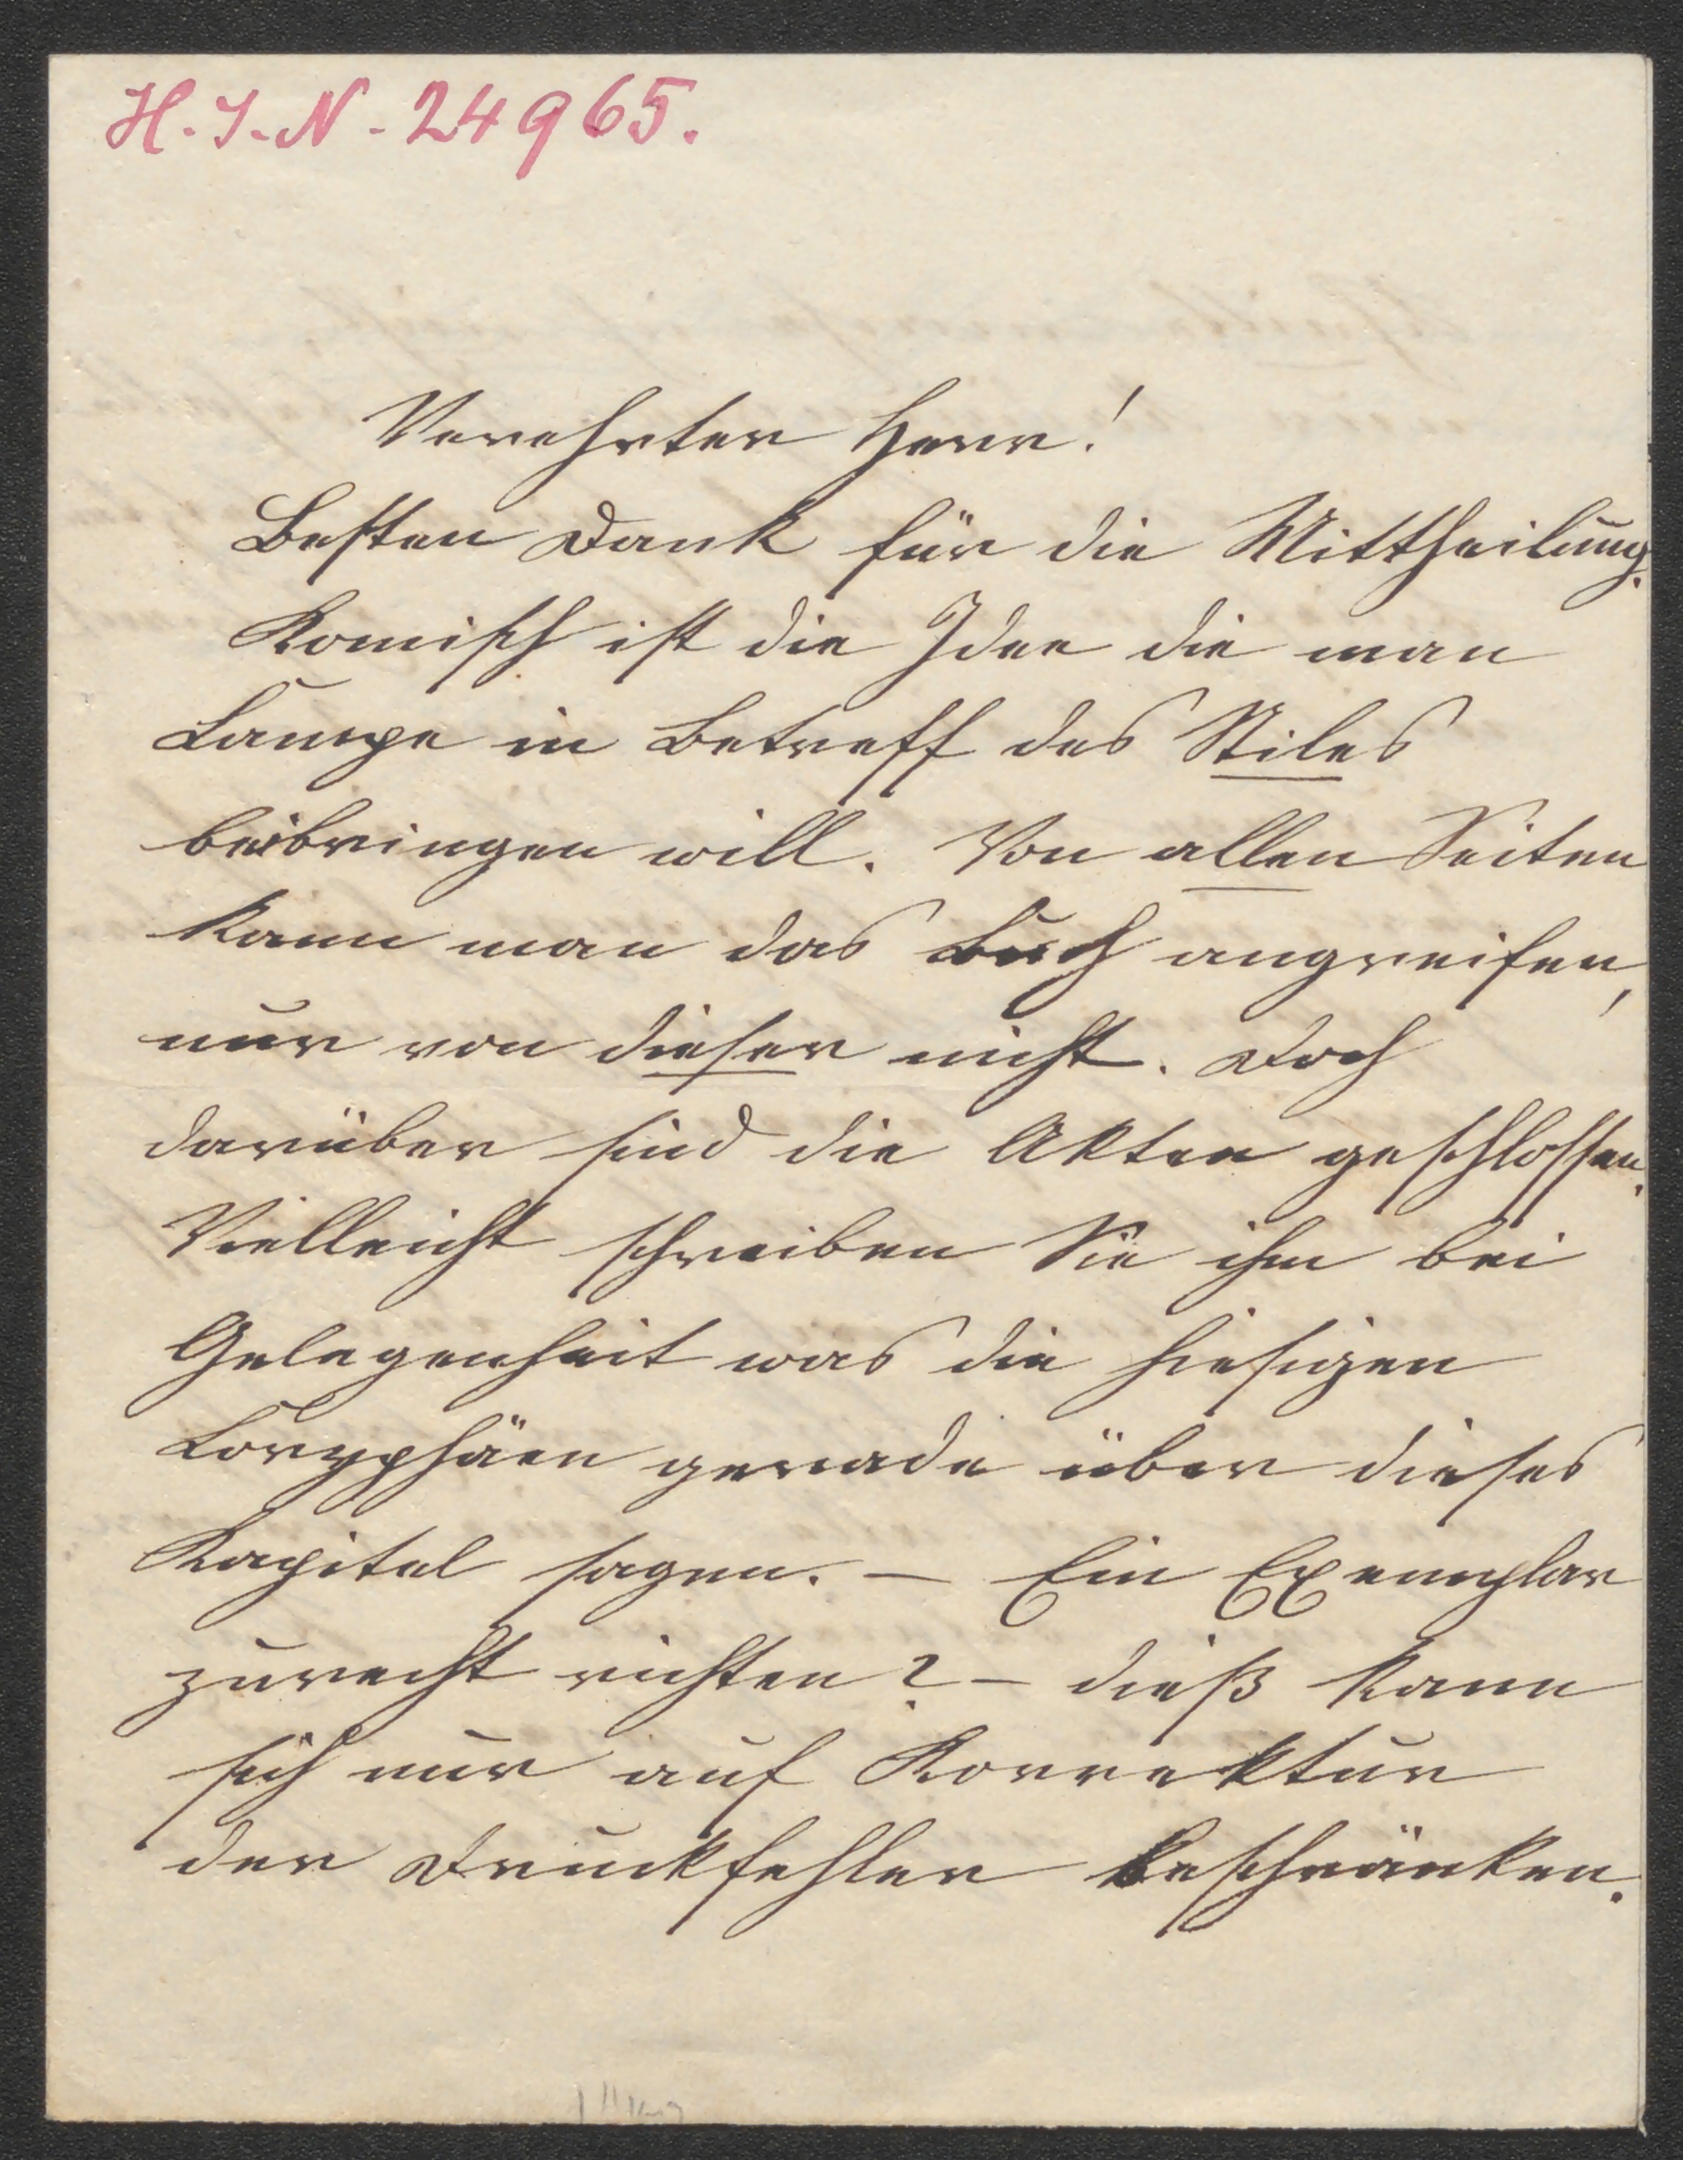 H. I. N. - 24965.
Verehrter Herr!
Besten Dank für die Mittheilung.
Komisch ist die Idee die man
Lampe in Betreff des Stiles
beibringen will. Von allen Seiten
kann man das Buch angreifen,
nur von dieser nicht. Doch
darüber sind die Akten geschlossen.
Vielleicht schreiben Sie ihm bei
Gelegenheit was die hiesigen
Coryphäen gerade über dieses
Kapitel sagen. – Ein Exemplar
zurecht richten? – dieß kann
sich nur auf Korrektur
der Druckfehler beschränken.